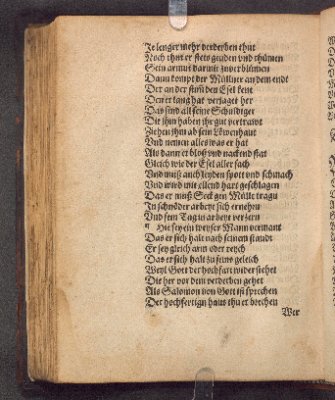 Je lenger mehr verderben thut
Noch thut er stets geuden vnd thümen
Sein armut darmit zuverblümen
Dann kompt der Müllner an dem endt
Der an der stim den Esel kent
Den er lang hat verjaget her
Das sind all seine Schuldiger
Die ihm haben ihr gut vertrawt
Ziehen ihm ab sein Löwenhaut
Vnd nemen alles was er hat
Als dann er bloß vnd nackend stat
Gleich wie der Esel aller sach
Vnd muß auch leyden spott vnd schmach
Vnd wird mit ellend hart geschlagen
Das er muß Seck gen Mülle tragn
In schnöder arbeyt sich ernehrn
Vnd sein Tag in arbeyt verzern
Die sey ein weyser Mann vermant
Das er sich halt nach seinem standt
Er sey gleich arm oder reych
Das er sich halt zu seins geleich
Weyl Gott der hochfart wider stehet
Die her vor dem verderben gehet
Als Salomon von Gott ist sprechen
Der hochfertign haus thu er brechen
Wer